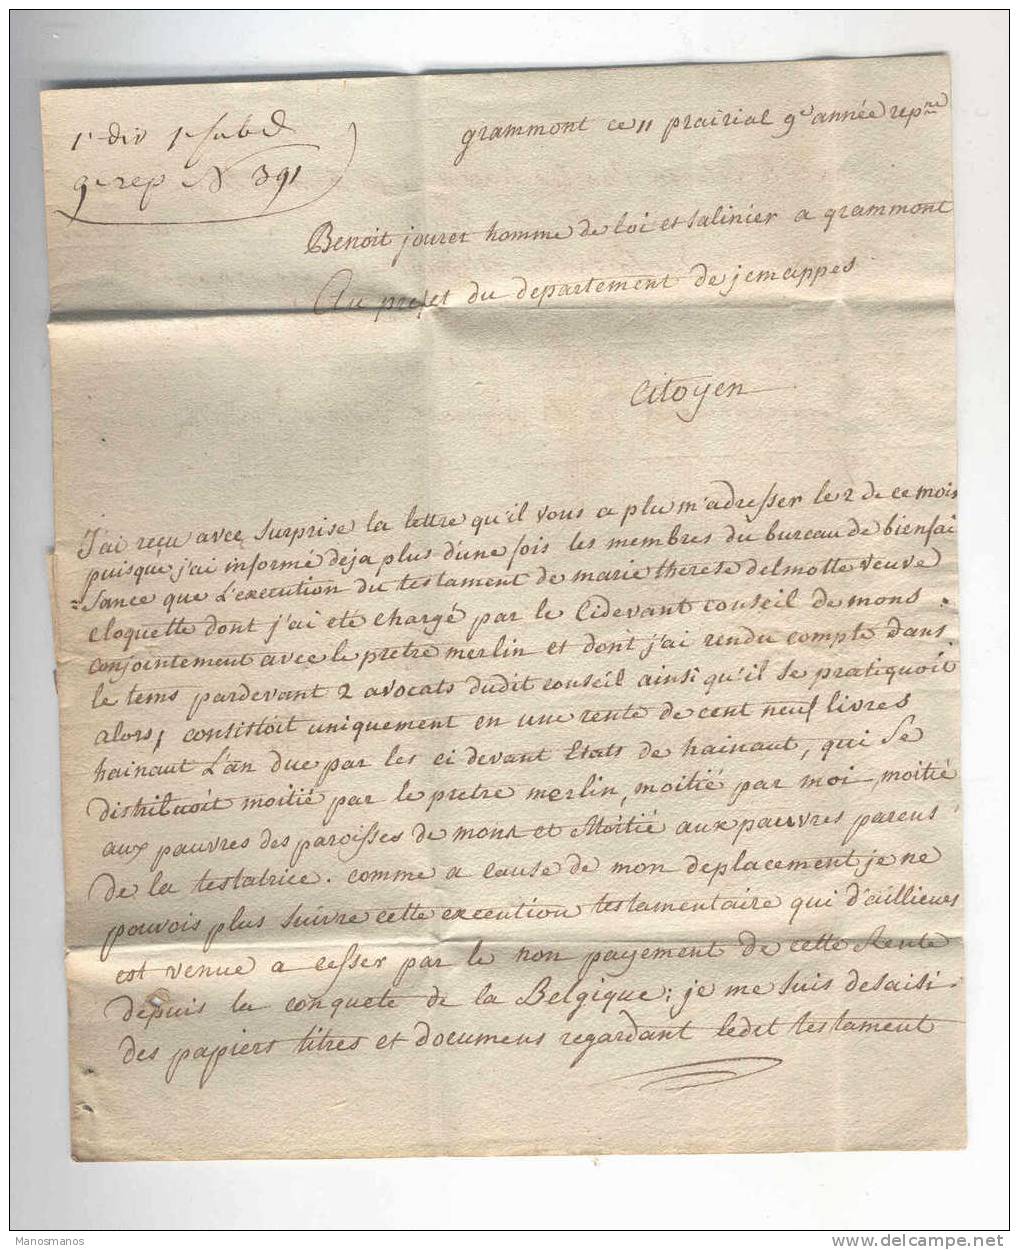 1e div 1e subd
9e rep N 391
grammont ce 11 prairial 9e année repne
Benoit jouret homme de loi et salinier a grammont
Au prefet du departement de jemappes
Citoyen
J'ai reçu avec surprise la lettre qu'il vous a plu m'adresser le 2 de ce mois
puisque j'ai informé deja plus d'une fois les membres du bureau de bienfai
=sance que L'execution du testament de marie therese delmotte veuve
cloquette dont j'ai eté chargé par le cidevant conseil de mons
conjointement avec le pretre merlin et dont j'ai rendu compte dans
le tems pardevant 2 avocats dudit conseil ainsi qu'il se pratiquoit
alors, consistoit uniquement en une rente de cent neuf livres
hainaut L'an due par les ci devant Etats de hainaut, qui se
distribuoit moitié par le pretre merlin, moitié par moi, moitié
aux pauvres des paroisses de mons et Moitié aux pauvres parens
de la testatrice. comme a cause de mon deplacement je ne
pouvois plus suivre cette execution testamentaire qui d'ailleurs
est venue a cesser par le non payement de cette Rente
depuis la conquete de la Belgique; je me suis desaisi
des papiers titres et documens regardant ledit testament
Manosmanos
www.delcampe.net